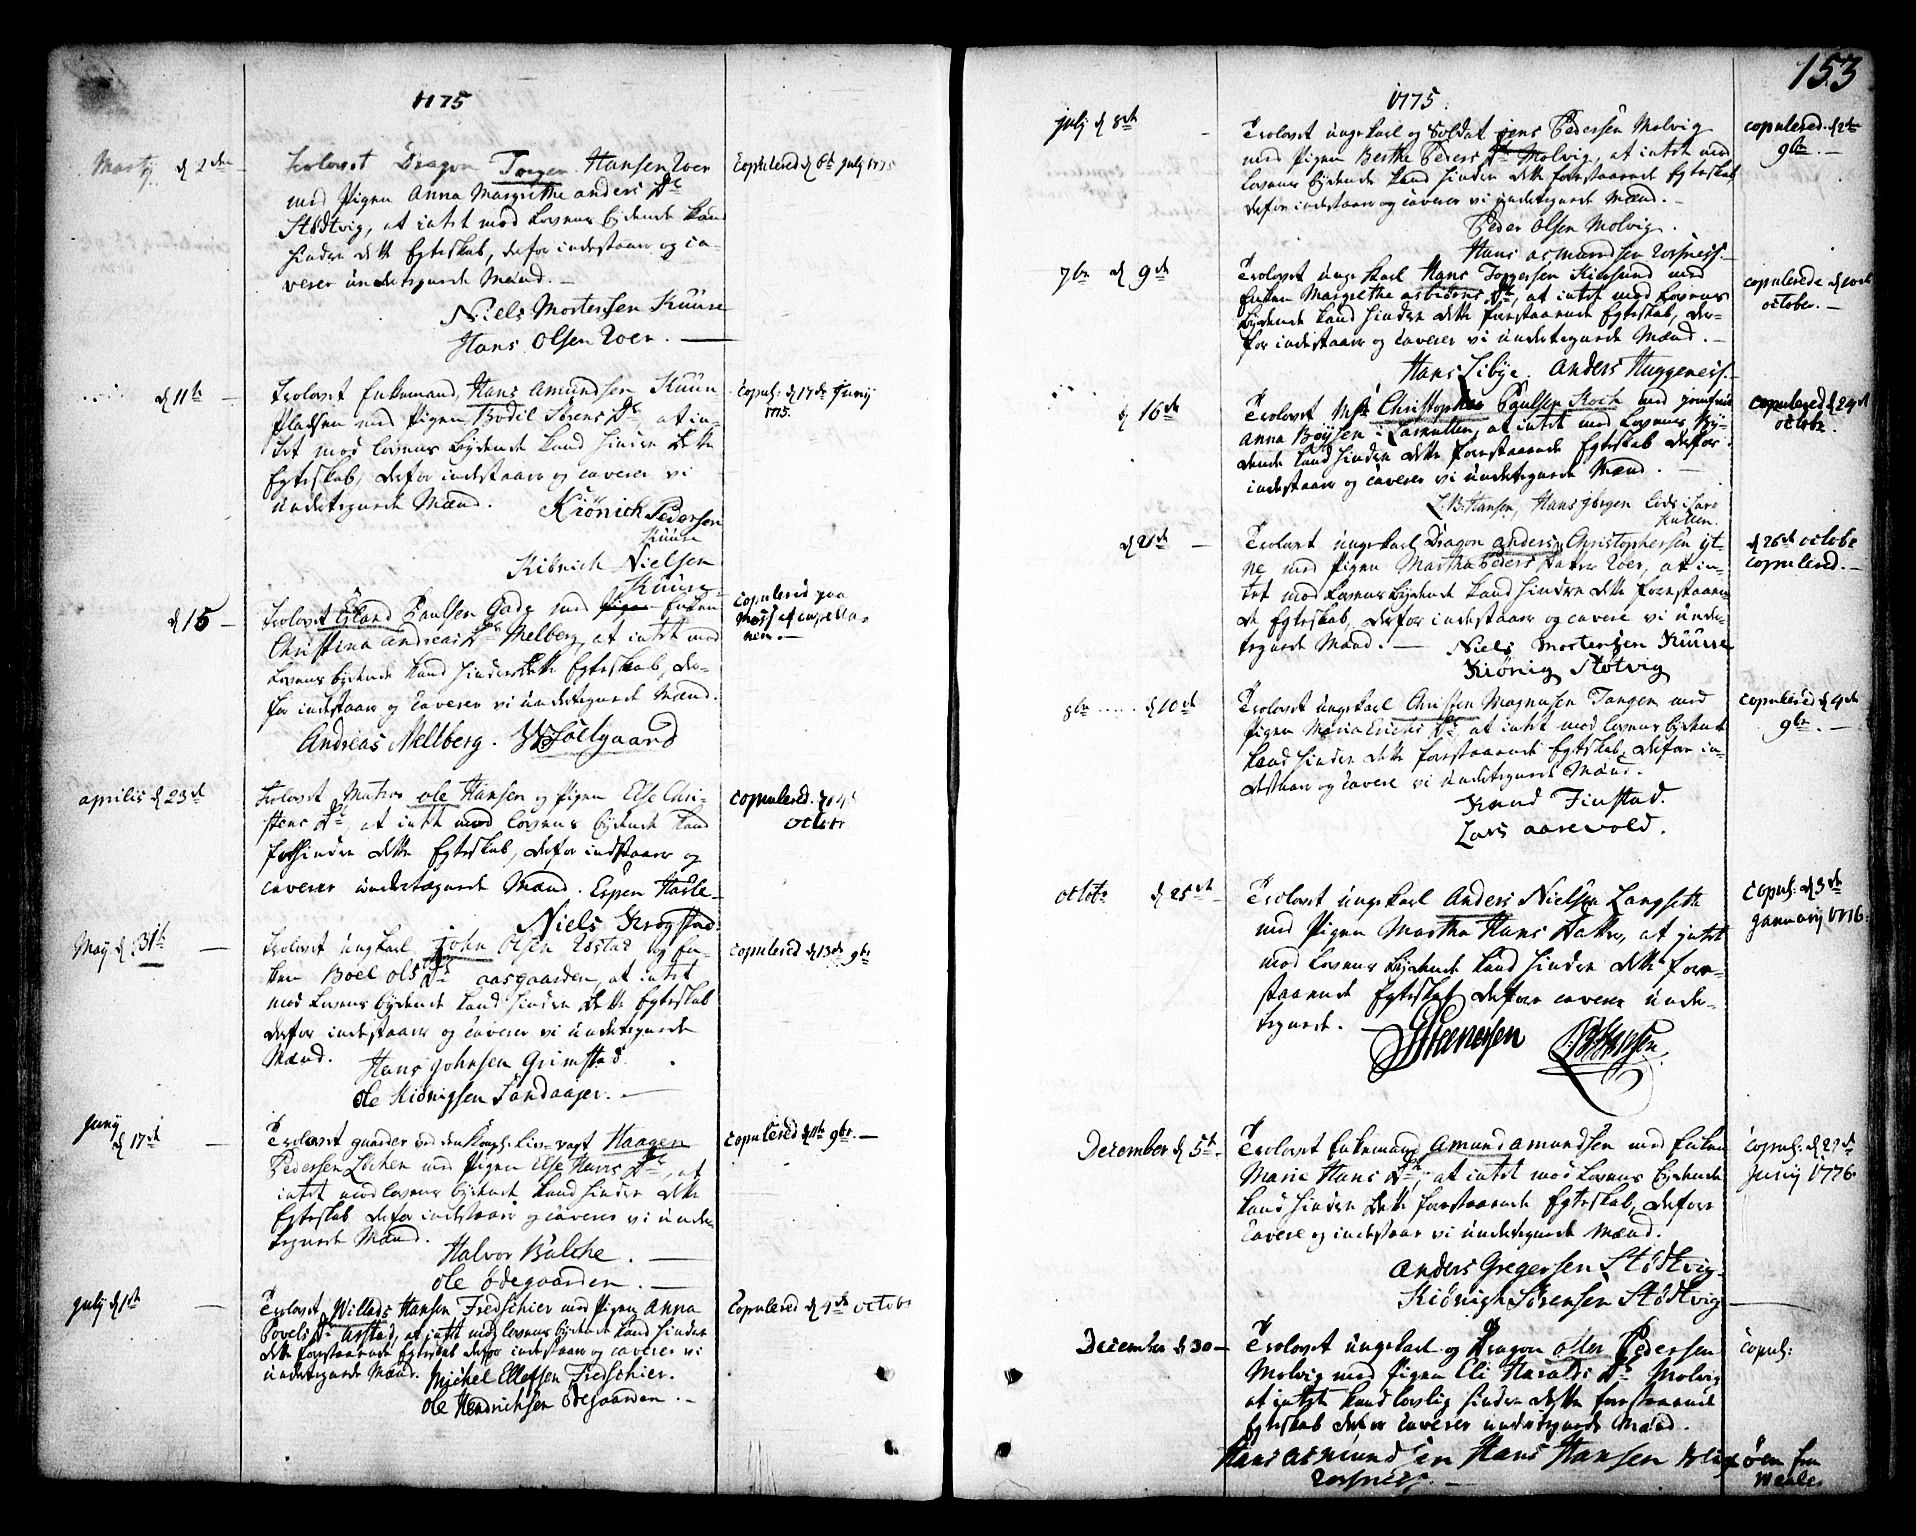 1775
Martij d 2den
Trolovet Dragon Torger Hansen Voer
med Pigen Anna Margrethe anders Dr
Stødtvig, at intet mod Lovens bydende kand
hindre dette Egteskab, derfor indestaar og ca-
verer undertegnede Mænd.
Niels Mortensen Kuure
Hans Olsen Voer.
Copulered d 6te july 1775
d 11te
Trolovet Enkemand Hans Amundsen Kuure
Pladsen med Pigen Bodil Sørens Dr, at in-
tet mod lovens bydende kand hindre dette
Egteskab, derfor indestaar og caverer vi
undertegnede Mænd.
Kiønich Pedersen
Kuure
Kiönich Nielsen
Kuure
Copul: d 17de Junij
1775.
d 15
Trolovet Erland Paulsen Gade med Pigen Enken
Christina andreas Dr Melberg, at intet mod
Lovens bydende kand hindre dette Egteskab, der-
for indestaar og Caverer vi undertegnede Mænd.
Andreas Mellberg. Søelgaard
Copulered paa
Moss af capella-
nen.
aprilis d 23de
Trolovet Matros ole Hansen og Pigen Else Chri-
stens Dr, at intet mod lovens bydende kand
forhindre dette Egteskab, derfor indstaar og
caverer undertegnede Mænd. Espen Hasle
Niels Krogstad
Copulered. d 4de
Octobr
May d 31te
Trolovet ungkarl john Olsen og En-
ken Boel ols Dr aasgaarden, at intet
mod Lovens bydende kand hindre dette Egteskab
derfor indestaar og caverer vi undertegnede
Mænd. Hans johnsen Grimstad
ole Kiönigsen Sandaager.
copulered d 13de 9br
Junij
d 17de
Trolovet guarder ved den Kongl. Liv-vagt Haagen
Pedersen Løchen med Pigen Else Hans Dr, at
intet mod lovens bydende kand hindre dette
Egteskab derfor indestaar og caverer vi under-
tegnede Mænd.
Halvor Balche
ole Ødegaarden.
Copulered d 11te 9br.
julij d 1ste
Trolovet Willads Hansen Fredschier med Pigen Anna
Povels Dr, at intet mod lovens bydende kand hindre
dette forestaaende Egteskab derfor indestaar og caverer vi
undertegnede Mænd. Michel Ellefsen Fredschier.
ole Hendrichsen Ødegaarden.
Copulered d 4de octobr
153
1775.
julj d 8de
Trolovet ungekarl og Soldat jens Pedersen Molvig
med Pigen Berthe Peders Dr Molvig, at intet mod
Lovens bydende kand hindre dette forestaaende Egteskab,
derfor indestaar og caverer vi undertegnede Mænd.
Peder Olsen Molvig.
Hans asmundsen
copulered. d 2de
9br.
7br d 9de
Trolovet ungekarl Hans Torgersen Kiersund med
Enken Margrethe asbiørns Dr, at intet mod Lovens
bydende kand hindre dette forestaaende Egteskab, der-
for indestaar og caverer vi undertegnede Mænd.
Hans Libye. Anders Huggeness.
copulerede d 10de
october.
d 16de
Trolovet Mr Christopher Paulsen Koch med jomfrue
Anna Bøysen i Larkullen, at intet mod Lovens By-
dende kand hindre dette forestaaende Egteskab derfor
indestaar og caverer vi undertegnede Mænd.
L. B. Hansen, Hans Jørgen Lods i Lar
kullen.
copulered d 24de
octobr.
d 21de
Trolovet ungekarl Dragon anders Christophersen
med Pigen Martha Peders Datter Voer, at in-
tet mod Lovens bydende kand hindre dette forestaaen-
de Egteskab, derfor indestaar og cavere vi under-
tegnede Mænd.
Niels Mortensen Kuure
Kiønig Støtvig
d 26de octobr
copulered.
8br d 10de
Trolovet ungekarl Christen Magnusen Tangen med
Pigen Maria Erichs Dr, at intet mod lovens bydende
kand hindre dette forestaaende Egteskab, derfor in-
destaar og cavere vi undertegnede Mænd.
Knud Finstad.
Lars aarevold.
copulered d 4de
9br.
octobr d 25de
Trolovet ungekarl Anders Nielsen Langsette
med Pigen Martha Hans Datter, at intet
mod Lovens bydende kand hindre dette fore-
staaende Egteskab derfor caverer under-
tegnede.
Copul: d 3de
january 1776.
December d 5te
Trolovet Enkemand Amund Amundsen med Enken
Marie Hans Dr, at intet mod Lovens bydende
kand hindre dette forestaaende Egteskab, derfor
Cavere og indestaar vi undertegnede Mænd.
Anders Gregersen Stødtvig
Kiönigh Sørensen Stødtvig
Copul: d 29de
Junij 1776.
December d 30
Trolovet ungekarl og Dragon Pedersen
Molvig med Pigen Eli Haralds Dr Molvig
at intet kand lovlig hindre dette forestaaende
Egteskab derfor Caverer undertegnede Mænd.
Hans asmundsen Hans Hansen
Copul: